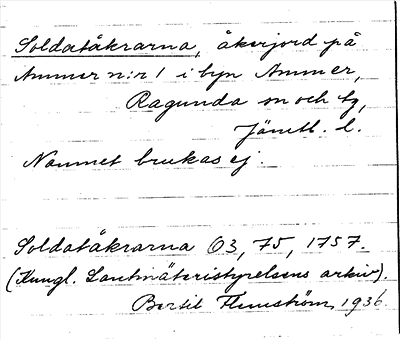 Soldatåkrarna, åkerjord på
Ammer n:r 1 i byn Ammer,
Ragunda sn och tg,
Jämtl. l.
Namnet brukas ej.
Soldatåkrarna O3, 75, 1757.
(Kungl. Lantmäteristyrelsens arkiv).
Bertil Flemström, 1936